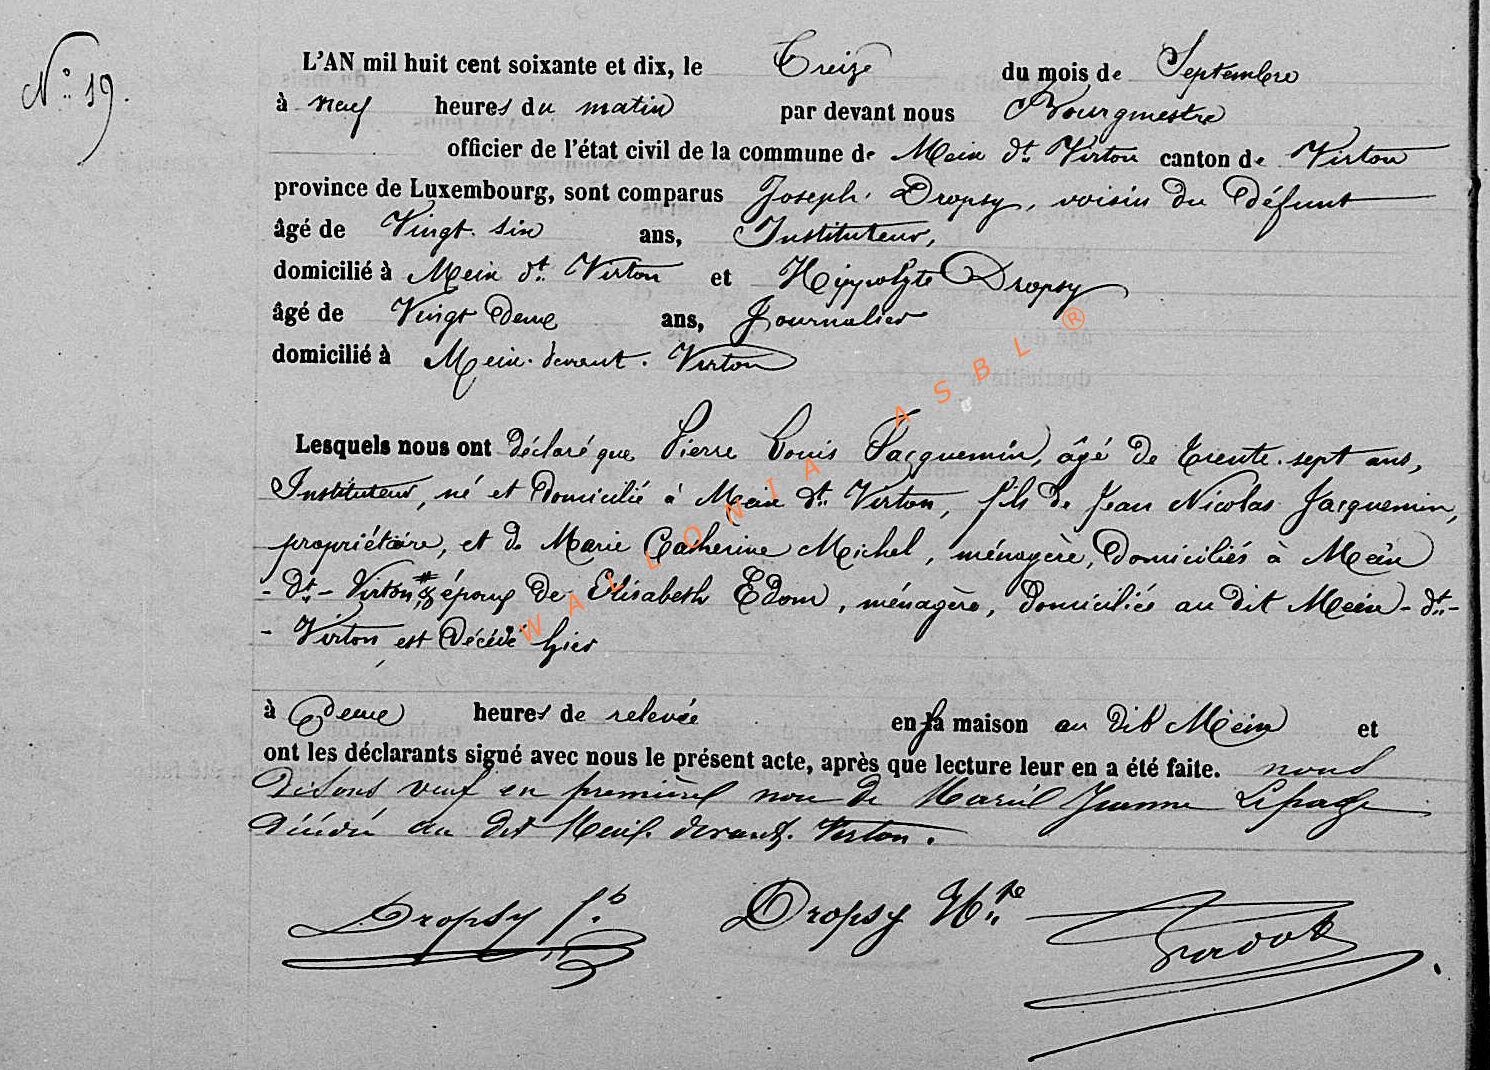 N° 19.
L'AN mil huit cent soixante et dix, le Treize du mois de Septembre
à neuf heures du matin par devant nous Bourgmestre
officier de l'état civil de la commune de Meix dt Virton canton de Virton
province de Luxembourg, sont comparus Joseph Dropsy, voisin du défunt
âgé de Vingt-six ans, Instituteur,
domicilié à Meix dt Virton et Hippolyte Dropsy
âgé de Vingt deux ans, Journalier
domicilié à Meix-devant-Virton
Lesquels nous ont déclaré que Pierre Louis Jacquemin, âgé de trente-sept ans,
Instituteur, né et domicilié à Meix dt Virton, fils de Jean Nicolas Jacquemin,
propriétaire, et de Marie Catherine Michel, ménagère, domiciliés à Meix
-dt-Virton, # époux de Elisabeth Edom, ménagère, domiciliée au dit Meix-dt-
-Virton, est décédé hier
à deux heures de relevée en sa maison au dit Meix et
ont les déclarants signé avec nous le présent acte, après que lecture leur en a été faite. nous
disons veuf en premières noce de Marie Jeanne Lepage
décédée au dit Meix-devant-Virton.
Dropsy Jh Dropsy Hte
WALLONIA ASBL ®